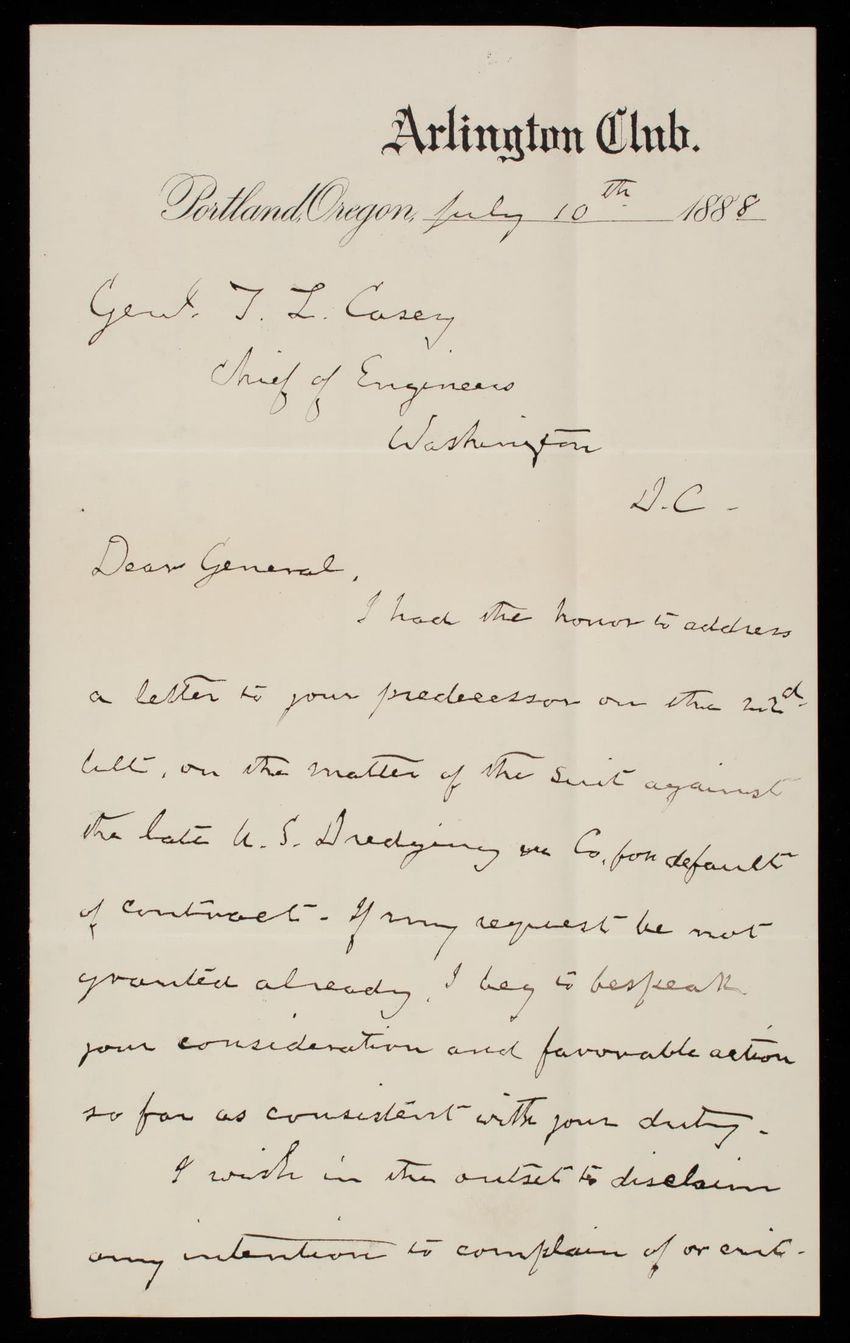 Arlington Club.
Portland, Oregon, July 10th 1888
Genl. T. L. Casey
Chief of Engineers
Washington
D.C -
Dear General,
I had the honor to address
a letter to your predecessor on the 22d
ult, on the matter of the suit against
the late U. S. Dredging Co. for default
of contract - If my request be not
granted already, I beg to bespeak
your consideration and favorable action
so far as consistent with your duty -
I wish in the outset to disclaim
any intention to complain of or crit-